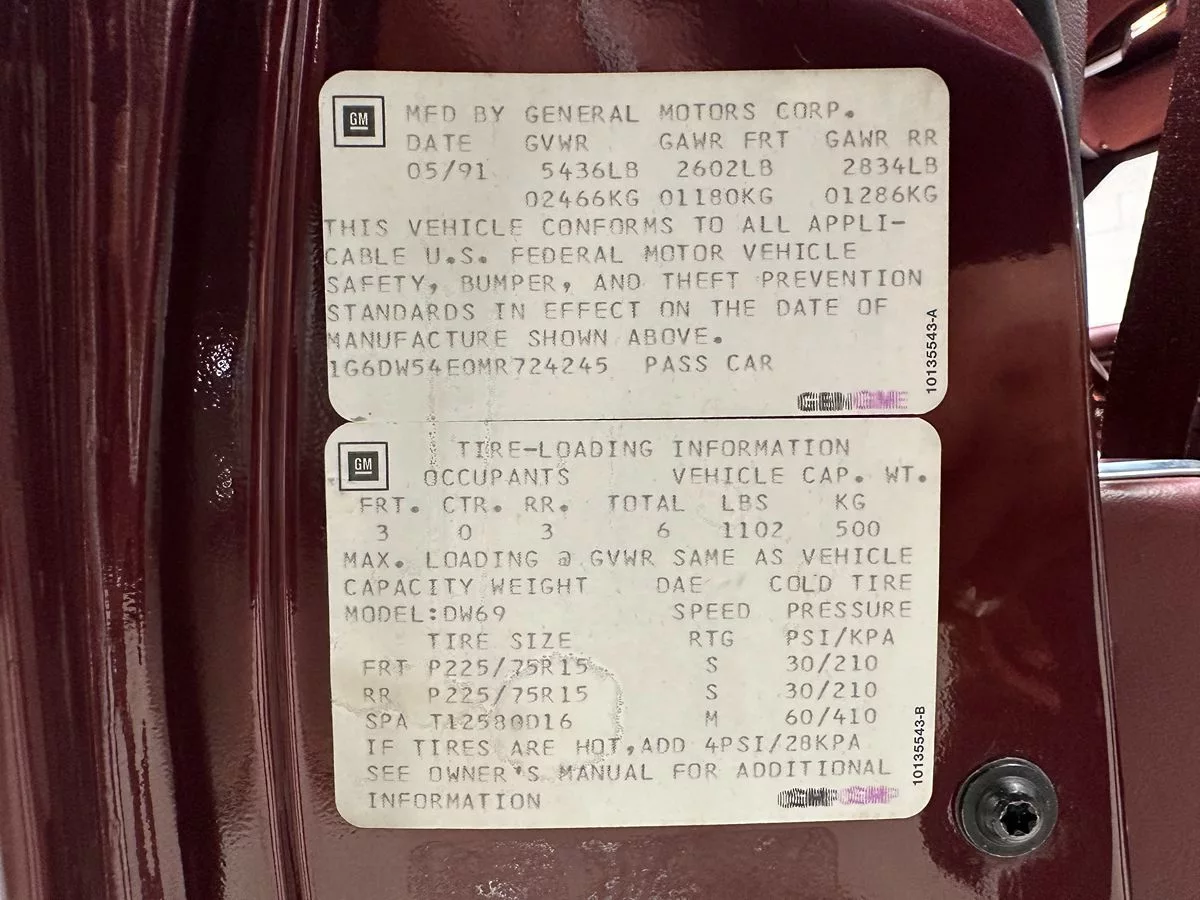 GM MFD BY GENERAL MOTORS CORP.
DATE GVWR GAWR FRT GAWR RR
05/91 5436LB 2602LB 2834LB
02466KG 01180KG 01286KG
THIS VEHICLE CONFORMS TO ALL APPLI-
CABLE U.S. FEDERAL MOTOR VEHICLE
SAFETY, BUMPER, AND THEFT PREVENTION
STANDARDS IN EFFECT ON THE DATE OF
MANUFACTURE SHOWN ABOVE.
1G6DW54E0MR724245 PASS CAR
10135543-A
GM TIRE-LOADING INFORMATION
OCCUPANTS VEHICLE CAP. WT.
FRT. CTR. RR. TOTAL LBS KG
3 0 3 6 1102 500
MAX. LOADING @ GVWR SAME AS VEHICLE
CAPACITY WEIGHT DAE COLD TIRE
MODEL:DW69 SPEED PRESSURE
TIRE SIZE RTG PSI/KPA
FRT P225/75R15 S 30/210
RR P225/75R15 S 30/210
SPA T12580D16 M 60/410
IF TIRES ARE HOT,ADD 4PSI/28KPA
SEE OWNER'S MANUAL FOR ADDITIONAL
INFORMATION
10135543-B